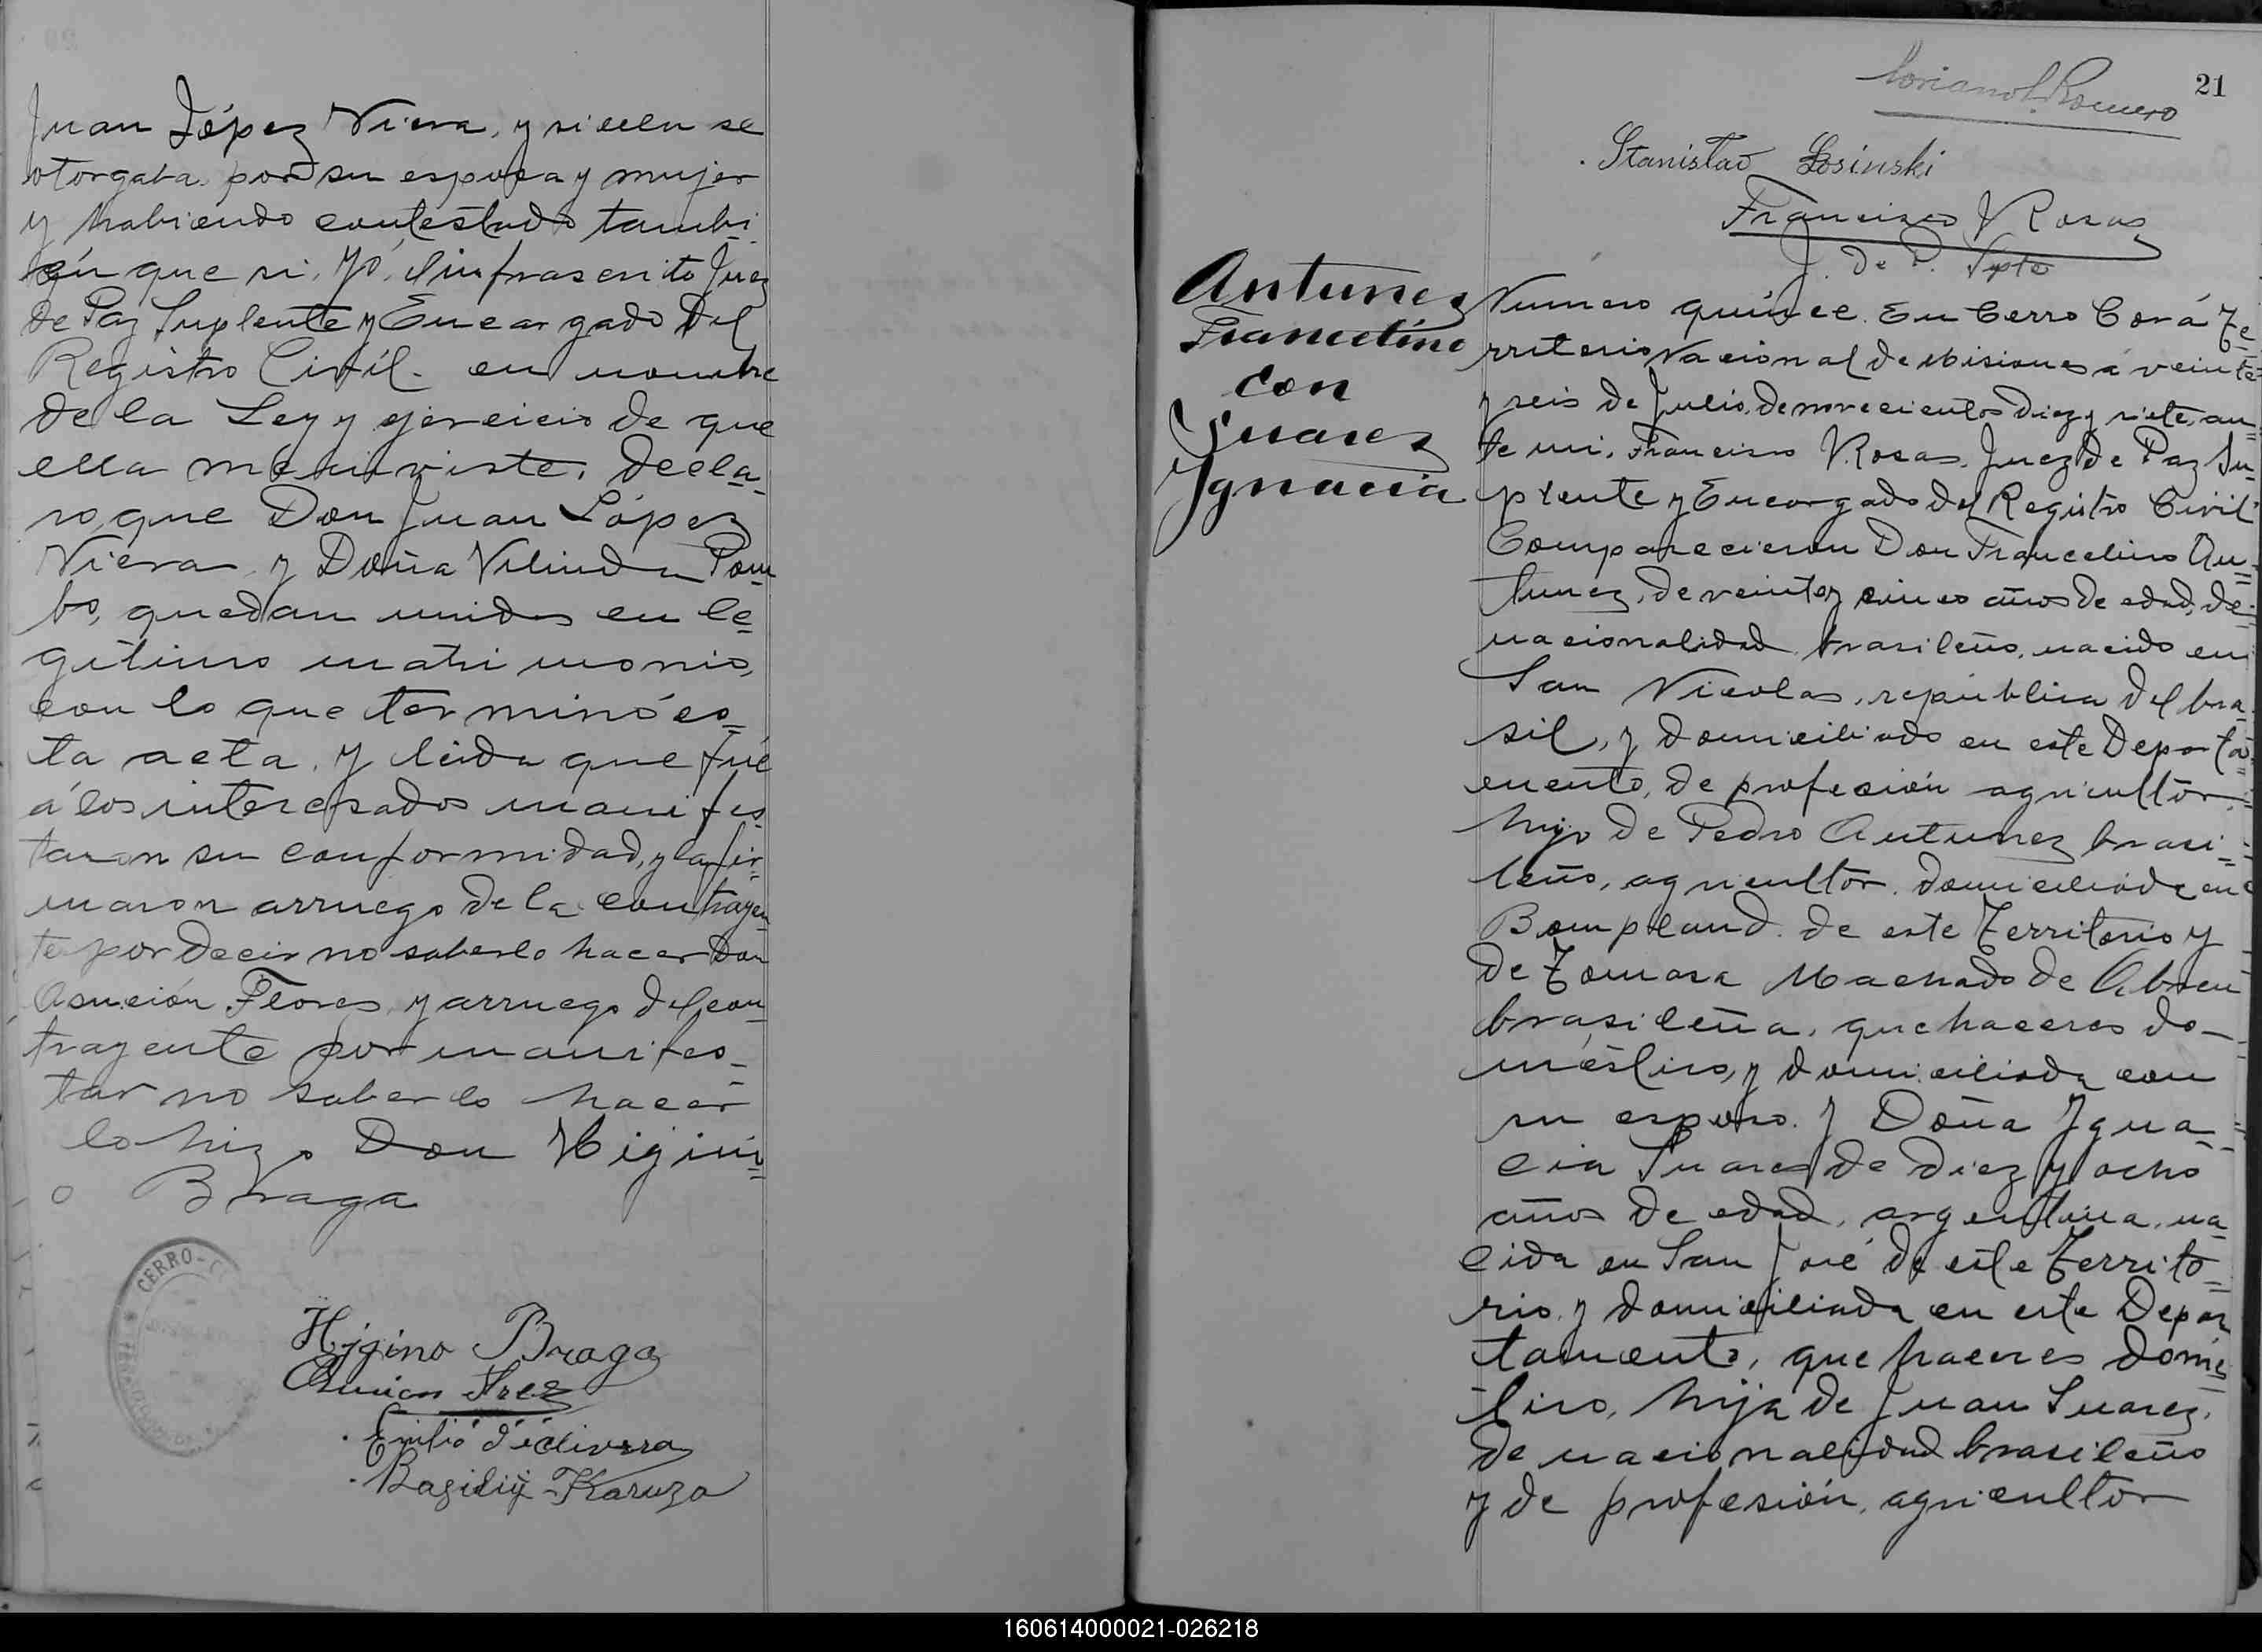 Juan López Viera, y si ella se
otorgaba por su esposa y mujer
y habiendo contestado tambi
én que si, Yó, el infrascrito Juez
de Paz Suplente y Encargado del
Registro Civíl. en nombre
de la Ley y ejercicio de que
ella me inviste. decla-
ro que Don Juan López
Viera y Doña Vilinda Pom
bo, quedan unidos en le-
gitimo matrimonio,
con lo que terminó és-
ta acta, y leida que fué
á los interesados manifes-
taron su conformidad, y la fir-
maron arruego de la contrayen
te por decir no saberlo hacer Don
Asunción Flores y arruego del con-
trayente por manifes-
tar no saberlo hacer
lo hizo Don Higini-
o Braga
CERRO-C
Higino Braga
Emilio d'Oliverra
Bazidiy Karuza
21
Romero
Stanistav Losinski
Francisco V Rosas
J. de P. Splte
Antunez
Francelino
con
Suarez
Ygnacia
Número quínce. En Cerro Corá Te-
rritorio Nacional de Misiones á veinte
y seis de Julio, de novecientos diez y siete, an-
te mi, Francisco V. Rosas, Juez de Paz Su-
plente y Encargado del Registro Civil
Comparecieron Don Francelino An-
tunez, de veinte y cinco años de edad, de
nacionalidad brasileño, nacido en
San Nicolas, república del bra-
sil, y domiciliado en este Departa-
mento, de profesión agricultor,
hijo de Pedro Antunez brasi-
leño, agricultor, domiciliado en
Bompland. de este Territorio y
de Tomasa Machado de Abreu
brasileña, quehaceres do-
méstico, y domiciliada con
su esposo. Y Doña Ygna-
cia Suarez de diez y ocho
años de edad, argentina, na-
cida en San José de este Territo-
rio y domiciliada en este Depar-
tamento, quehaceres domés-
tico, hija de Juan Suarez,
de nacionalidad brasileño
y de profesión, agricultor
160614000021-026218